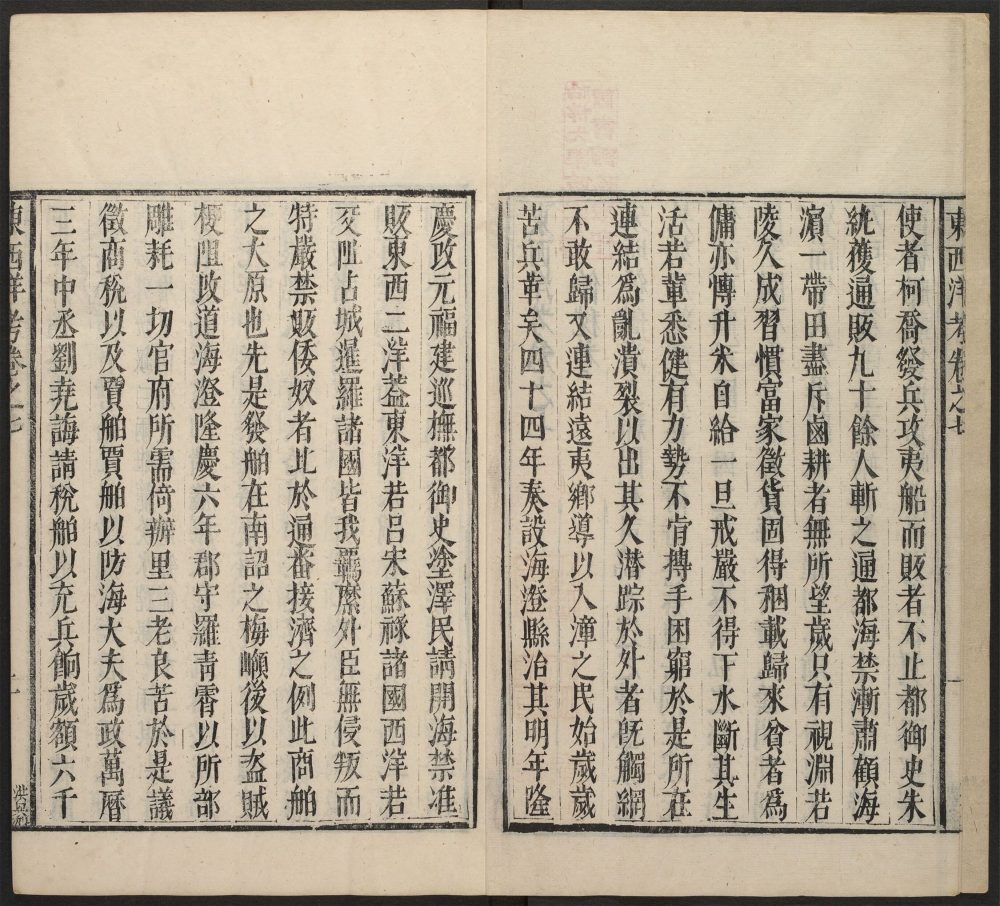 東西洋考卷之七
使者柯喬發兵攻夷船而販者不止都御史朱
紈獲通販九十餘人斬之通都海禁漸肅顧海
濵一帶田盡斥鹵耕者無所望歲只有視淵若
陵久成習慣富家徵貨固得稛載歸來貧者為
傭亦慱升米自給一旦戒嚴不得下水斷其生
活若輩悉健有力勢不肯搏手困窮於是所在
連結為亂潰裂以出其久潜踪於外者旣觸網
不敢歸又連結遠夷鄉導以入漳之民始歲歲
苦兵革矣四十四年奏設海澄縣治其明年隆
慶改元福建巡撫都御史塗澤民請開海禁准
販東西二洋葢東洋若呂宋蘇祿諸國西洋若
交阯占城暹羅諸國皆我羈縻外臣無侵叛而
特嚴禁販倭奴者比於通番接濟之例此商舶
之大原也先是發舶在南詔之梅嶺後以盜賊
梗阻改道海澄隆慶六年郡守羅青霄以所部
雕耗一切官府所需倚辦里三老良苦於是議
徵商稅以及賈舶賈舶以防海大夫為政萬曆
三年中丞劉堯誨請稅舶以充兵餉歲額六千
東西洋考卷之七
二